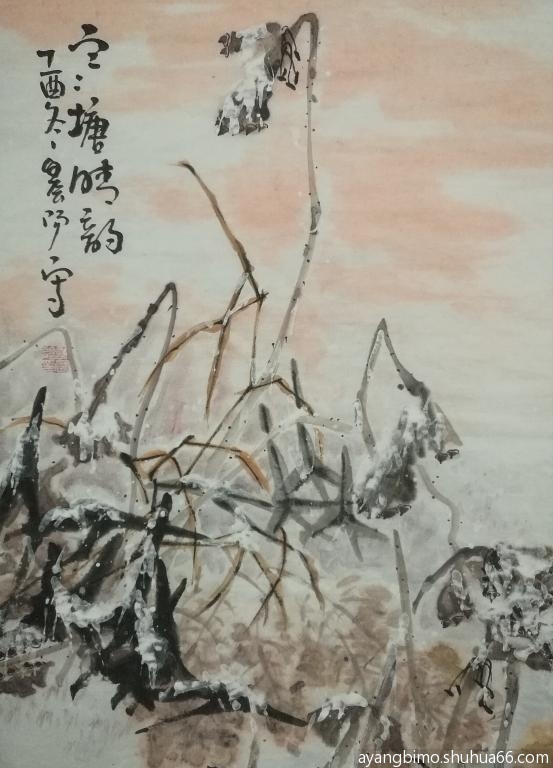 寒塘晴韵
丁酉冬晨写
ayangbimo.shuhua66.com